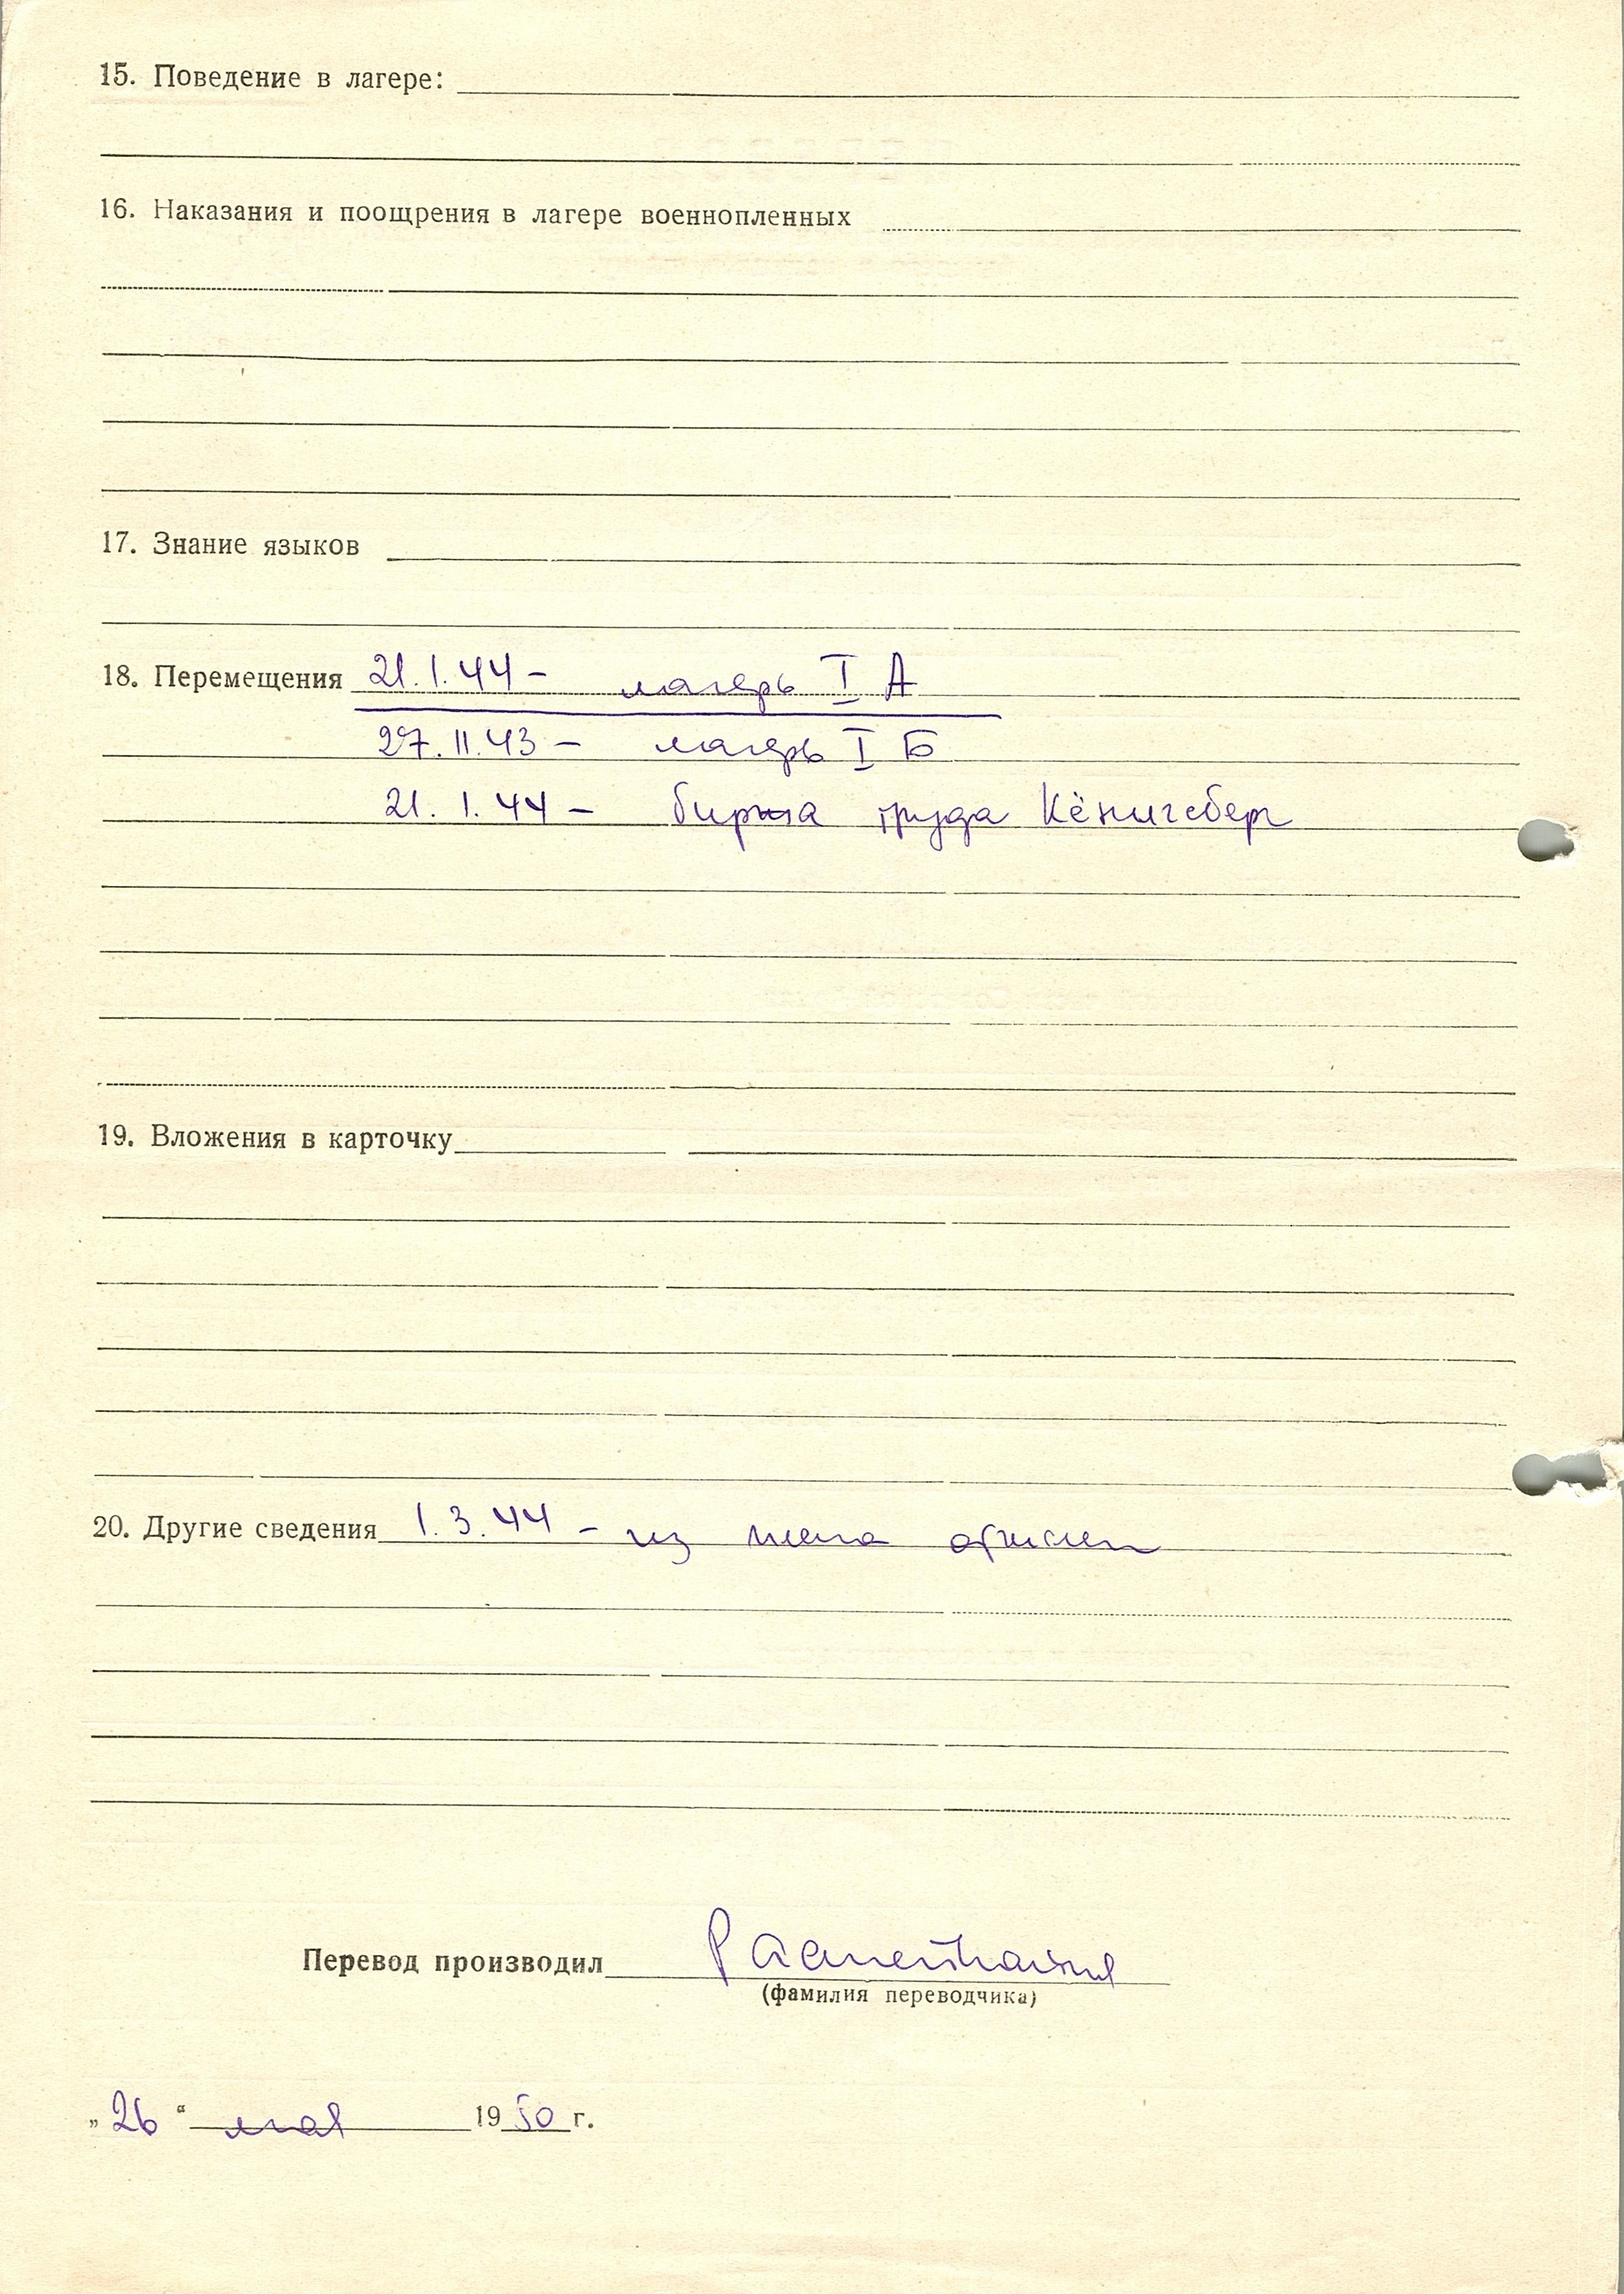 15. Поведение в лагере:
16. Наказания и поощрения в лагере военнопленных
17. Знание языков
18. Перемещения 21.1.44 - лагерь I А
27.11.43 - лагерь I Б
21.1.44 - биржа труда Кёнигсберг
19. Вложения в карточку
20. Другие сведения 1.3.44 - из
Перевод производил
(фамилия переводчика)
„26“ мая 1950 г.